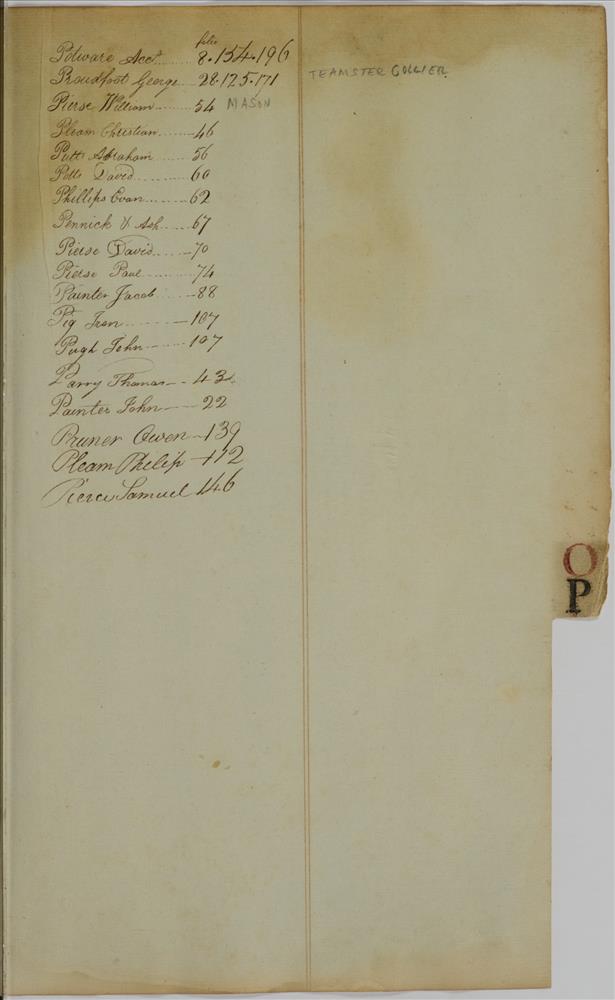 folio
Potware Acct 8.154.196
Proudfoot George 28.125.171 TEAMSTER COLLIER
Pierse William 54 MASON
Pleam Christian 46
Putts Abraham 56
Potts David 60
Phillips Evan 62
Pennick & Ash 67
Pierse David 70
Pierse Paul 74
Painter Jacob 88
Pig Iron 107
Pugh John 107
Parry Thomas 43
Painter John 22
Pruner Owen 139
Pleam Philip 112
Pierce Samuel 146
O
P